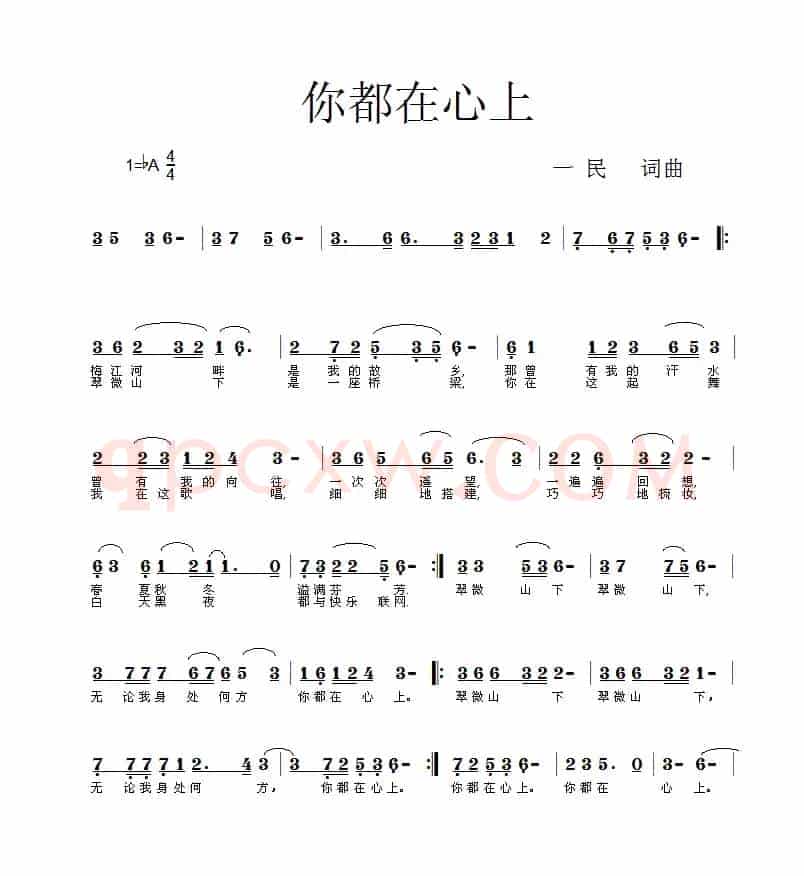 你都在心上
1=♭A 4/4 一 民 词曲
35 36- | 37 56- | 3. 66. 3231 2 | 7 67536- |:
3623216. | 2 725356- | 61 123 653
梅江河 畔 是我的故 乡, 那曾 有我的汗水
翠微山 下 是一座桥 梁, 你在 这起舞
2 23124 3- | 365 656. 3 | 226322-
曾有我的向往, 一次次遥望, 一遍遍回想,
我在这歌唱, 细细地搭建, 巧巧地梳妆,
63 61211. 0 | 7322256- :| 33 536- | 37 756-
春夏秋冬 溢满芬芳. 翠微山下 翠微山下,
白天黑夜 都与快乐联网.
3 777 6765 3 | 16124 3- |: 366 322- | 366 3221-
无论我身处何方 你都在心上。 翠微山下 翠微山下,
7 77712. 43 | 3 72536- :| 72536- | 235. 0 | 3- 6-
无论我身处何方, 你都在心上。 你都在心上。 你都在 心上。
qpcxw.COM